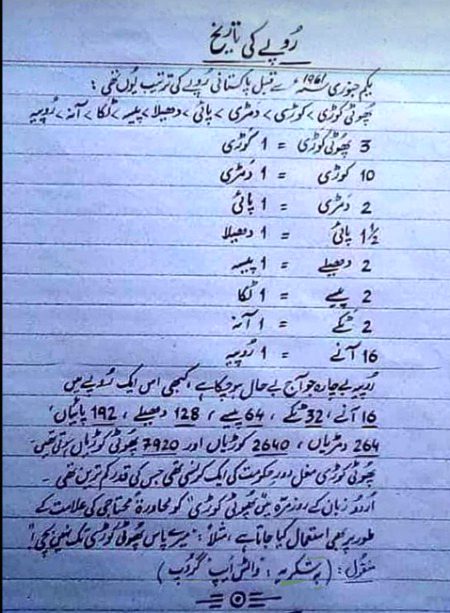 رُوپے کی تاریخ
یکم جنوری سنہ 1961ء سے قبل پاکستانی رُوپے کی ترتیب یُوں تھی:
پُھوٹی کوڑی > کوڑی > دمڑی > پائی > دھیلا > پیسہ > ٹکا > آنہ > رُوپیہ
3 پُھوٹی کوڑی = 1 کوڑی
10 کوڑی = 1 دَمڑی
2 دَمڑی = 1 پائی
1½ پائی = 1 دھیلا
2 دھیلے = 1 پیسہ
2 پیسے = 1 ٹکا
2 ٹکے = 1 آنہ
16 آنے = 1 رُوپیہ
رُوپیہ بے چارہ جو آج بے حال ہو چکا ہے، کبھی اس ایک رُوپے میں
16 آنے، 32 ٹکے، 64 پیسے، 128 دھیلے، 192 پائیاں،
264 دمڑیاں، 2640 کوڑیاں اور 7920 پُھوٹی کوڑیاں ہوتی تھیں۔
پُھوٹی کوڑی مغل دورِ حکومت کی ایک کرنسی تھی جس کی قدر کم ترین تھی۔
اُردو زبان کے روزمرّہ میں "پُھوٹی کوڑی" کو محاورۃً محتاجی کی علامت کے
طور پر بھی استعمال کیا جاتا ہے، مثلاً: میرے پاس پُھوٹی کوڑی تک نہیں بچی!
منقول: (بہ شکریہ: واٹس ایپ گروپ)